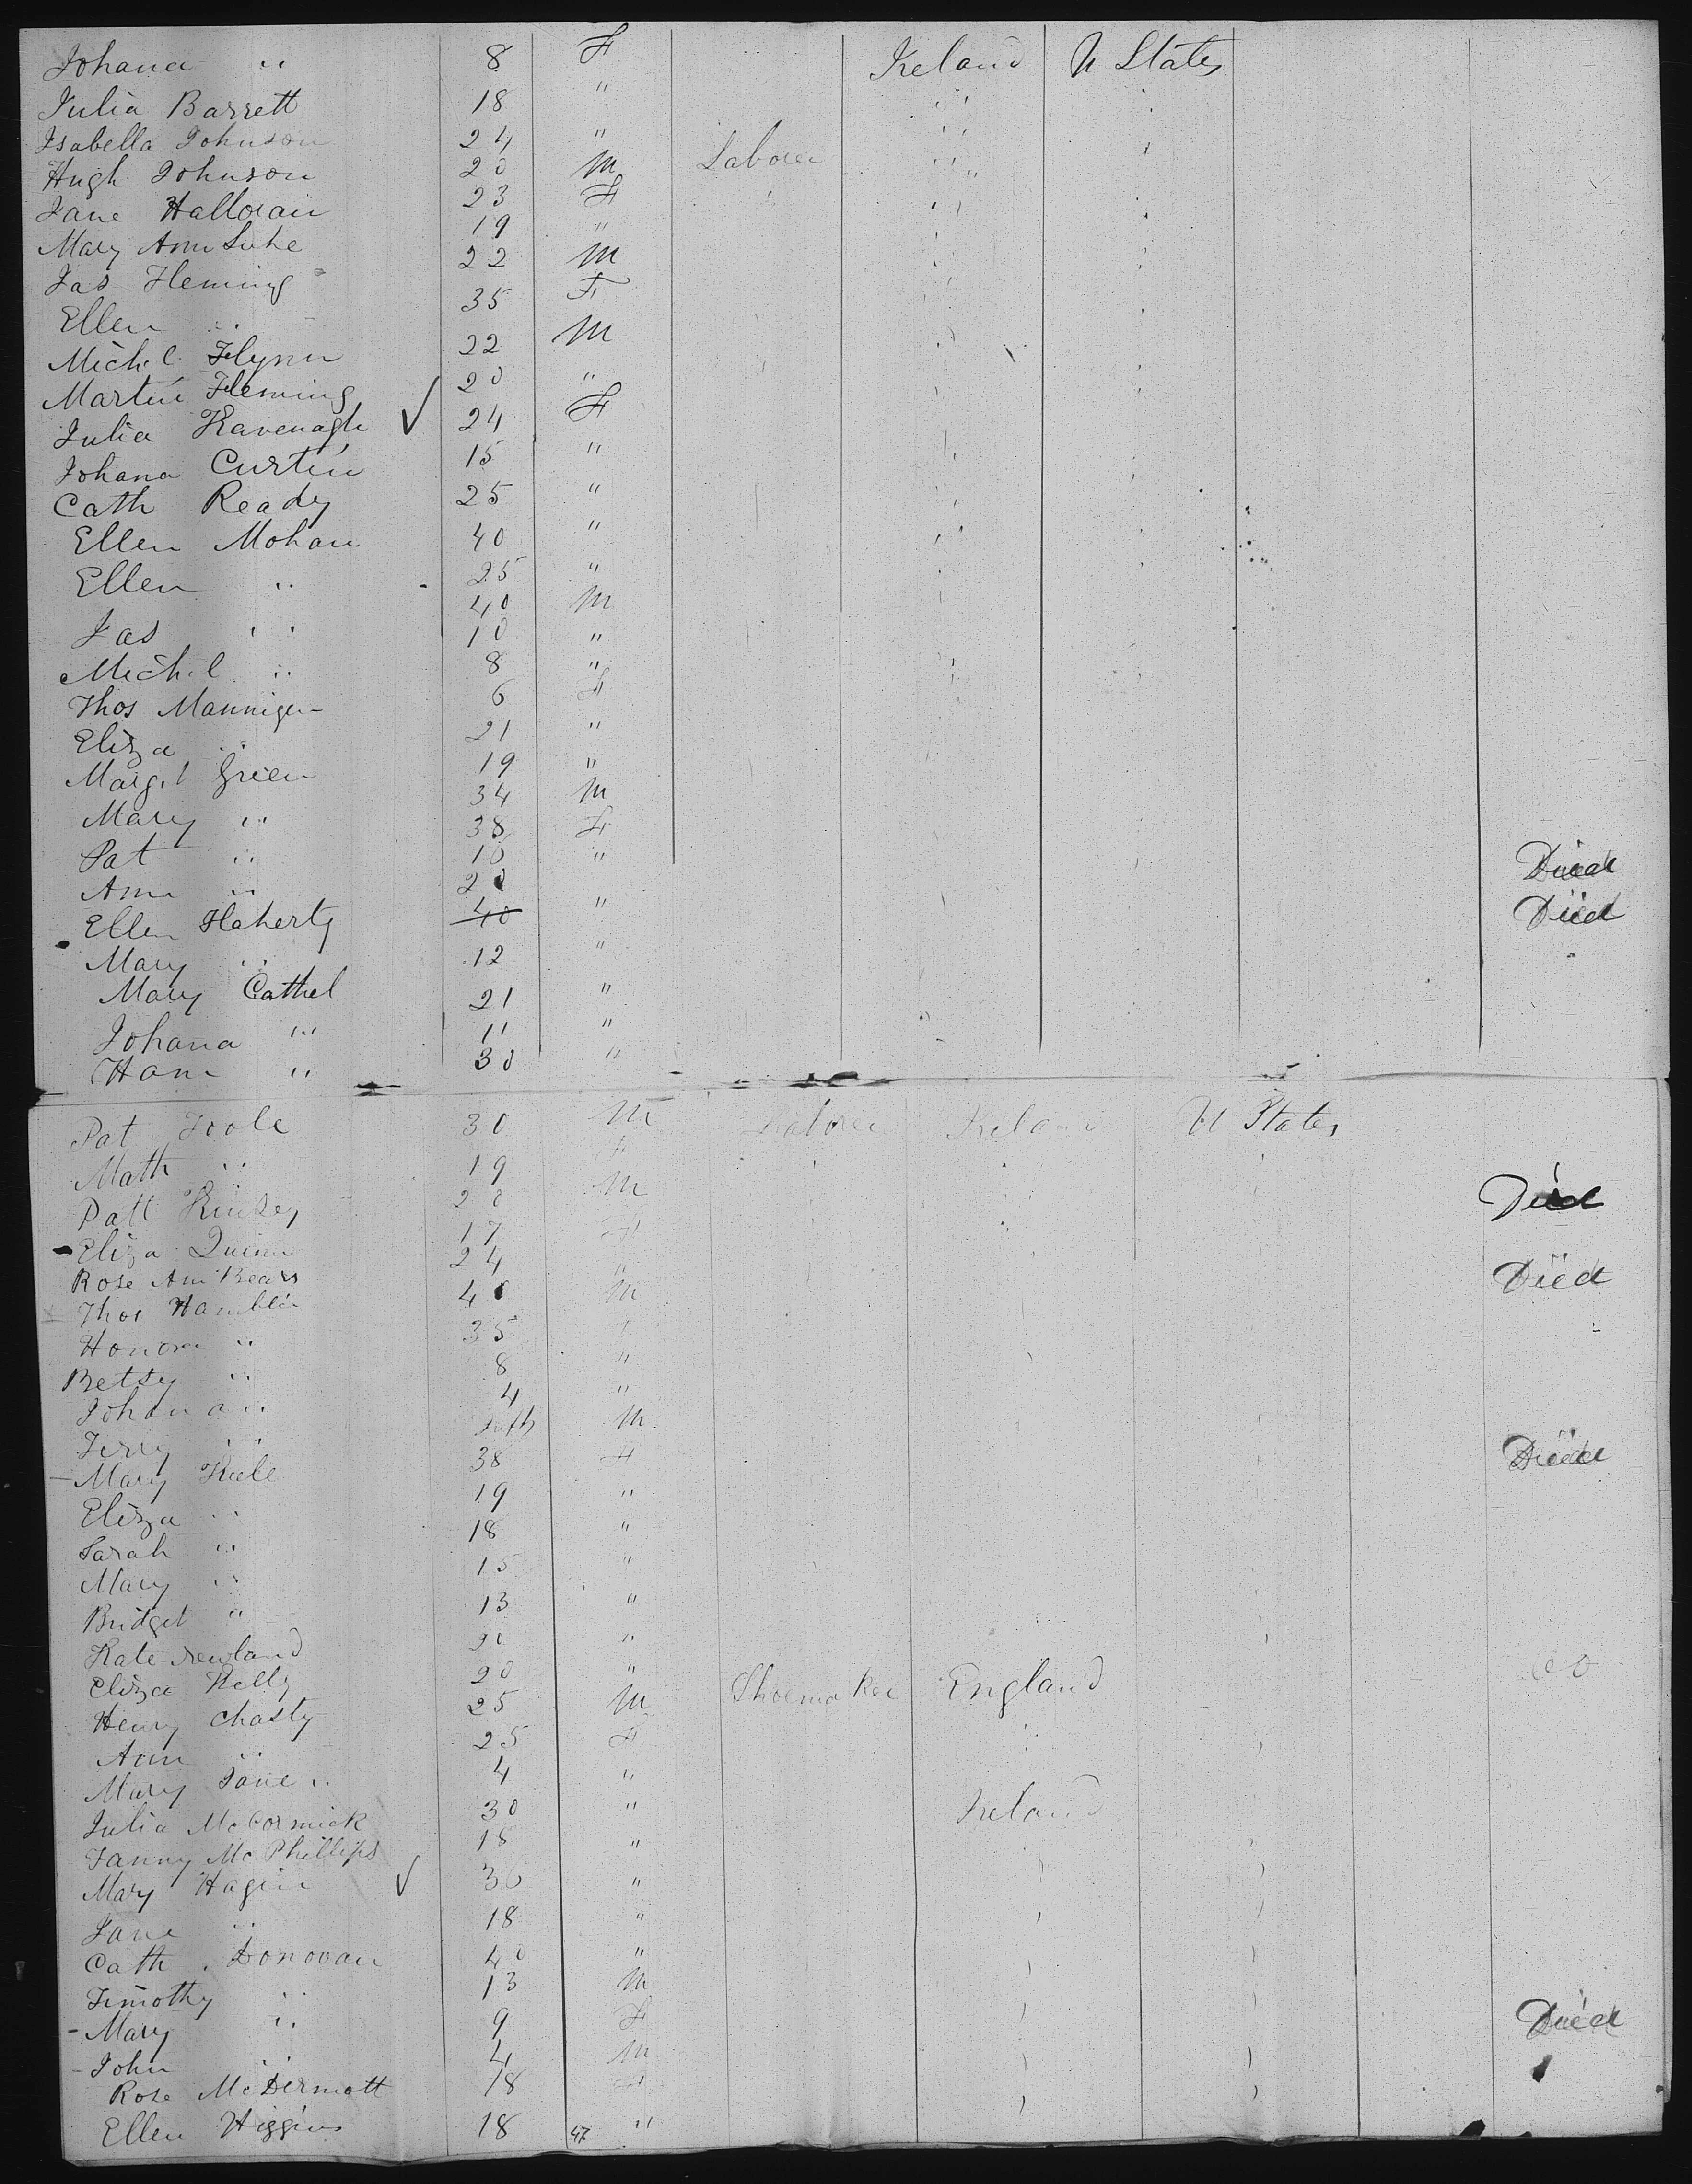 Johana " 8 F Ireland U States
Julia Barrett 18 "
Isabella Johnson 24 "
Hugh Johnson 20 M Laborer
Jane Halloran 23 F
Mary Ann 19 "
Jas Fleming 22 M
Ellen " 35 F
Michl Flynn 22 M
Martin Fleming 20 "
Julia Kavenagh ✓ 24 F
Johana Curtin 15 "
Cath Ready 25 "
Ellen Mohan 40 "
Ellen " 25 "
Jas " 40 M
Michl " 10 "
Thos Mannigen 8 "
Eliza " 6 F
Margt Green 21 "
Mary " 19 "
Pat " 34 M
Ann " 38 F
Ellen Flaherty 10 " Died
Mary " 20 Died
Mary Cathel 40 "
12 "
Johana " 21 "
11 "
Hanr " 30 "
Pat Toole 30 M Laborer Ireland U States
Math " 19 F
Patt 20 M Died
Eliza Quinn 17 F
Rose Ann Bears 24 " Died
Thos Hamblin 40 M
Honora " 35 F
Betsy " 8 "
Johana " 4 "
Jerry " Inft M
Mary 38 F Died
Eliza " 19 "
Sarah " 18 "
Mary " 15 "
Bridget " 13 "
Kate Newland 20 "
Eliza Kelly 20 "
Henry Chasty 25 M Shoemaker England
Ann " 25 F
Mary Jane " 4 "
Julia McCormick 30 " Ireland
Fanny McPhillips 18 "
Mary Hagin ✓ 30 "
Jane " 18 "
Cath Donovan 40 "
Timothy " 13 M
Mary " 9 F Died
John " 4 M
Rose McDermott 18 F
Ellen Higgins 18 47 "